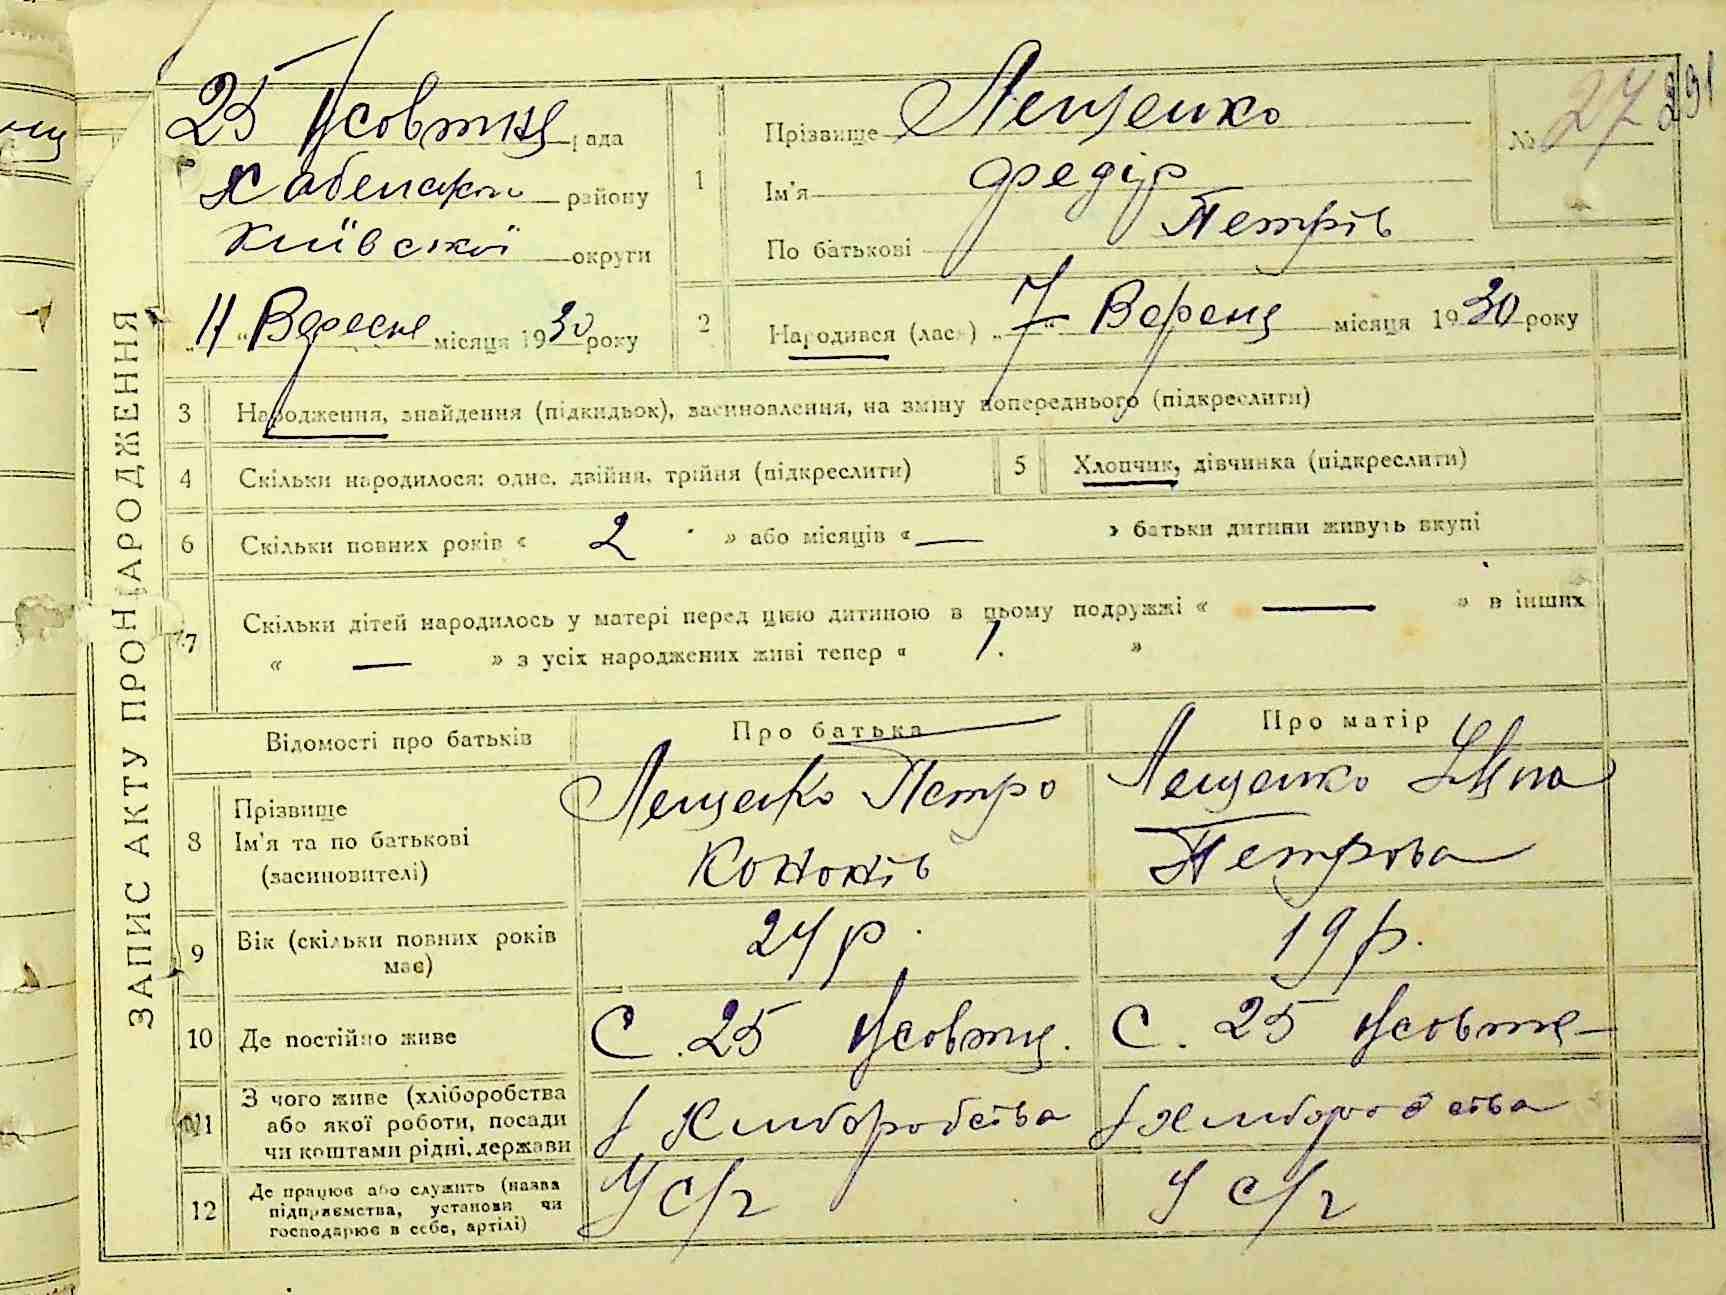 ЗАПИС АКТУ ПРО НАРОДЖЕННЯ
25 Жовтня рада
Хабенськ району
Київської округи
„11“ Вересне місяця 1930 року
1
Прізвище Лещенко
Ім'я Федір
По батькові Петрів
№ 27
291
2
Народився (лась) „7“ Вересня місяця 1930 року
3 Народження, знайдення (підкидьок), засиновлення, на зміну попереднього (підкреслити)
4 Скільки народилося: одне, двійня, трійня (підкреслити)
5 Хлопчик, дівчинка (підкреслити)
6 Скільки повних років « 2 » або місяців « — » батьки дитини живуть вкупі
7 Скільки дітей народилось у матері перед цією дитиною в цьому подружжі « — » в інших
« — » з усіх народжених живі тепер « 1. »
Відомості про батьків
Про батька
Про матір
8 Прізвище
Ім'я та по батькові
(засиновителі)
Лещенко Петро
Кононів
Лещенко
Петрова
9 Вік (скільки повних років
має)
24 р.
19 р.
10 Де постійно живе
С. 25 Жовтн.
С. 25 Жовтне
11 З чого живе (хліборобства
або якої роботи, посади
чи коштами рідні, держави
Хліборобства
Хліборобства
12 Де працює або служить (назва
підприємства, установи чи
господарює в себе, артілі)
У с/г
У с/г